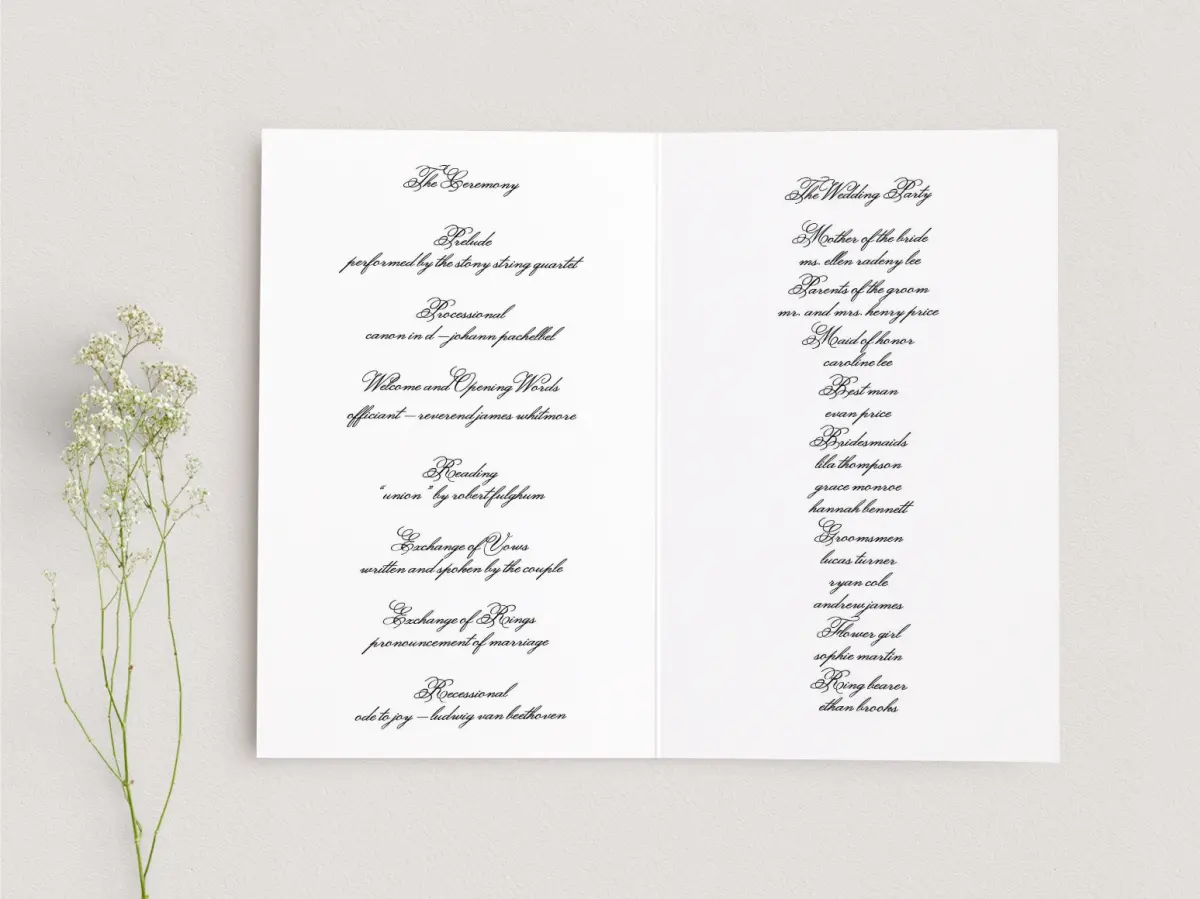 The Ceremony
Prelude
performed by the stony string quartet
Processional
canon in d – johann pachelbel
Welcome and Opening Words
officiant – reverend james whitmore
Reading
“union” by robert fulghum
Exchange of Vows
written and spoken by the couple
Exchange of Rings
pronouncement of marriage
Recessional
ode to joy – ludwig van beethoven
The Wedding Party
Mother of the bride
ms. ellen radeny lee
Parents of the groom
mr. and mrs. henry price
Maid of honor
caroline lee
Best man
evan price
Bridesmaids
lila thompson
grace monroe
hannah bennett
Groomsmen
lucas turner
ryan cole
andrew james
Flower girl
sophie martin
Ring bearer
ethan brooks